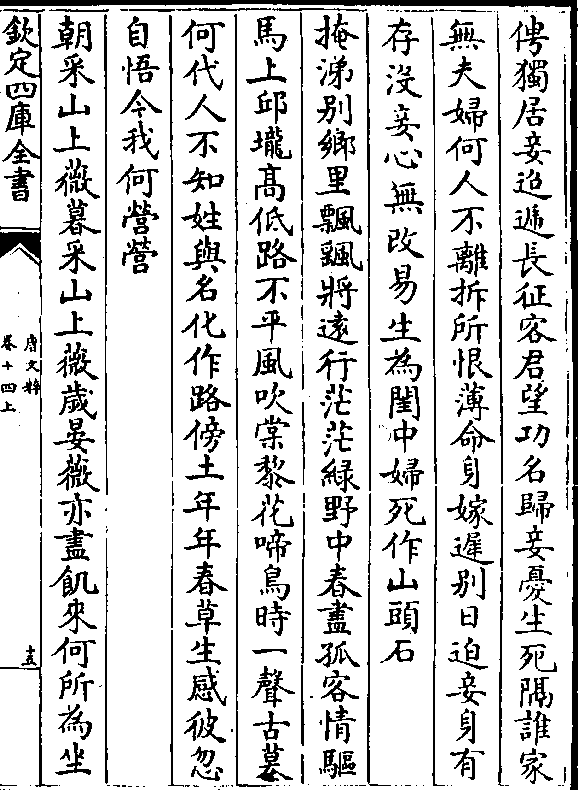 俜獨居妾迢遞長征客君望功名歸妾憂生死隔誰家
無夫婦何人不離拆所恨薄命身嫁遲別日迫妾身有
存没妾心無改易生為閨中婦死作山頭石
掩涕别鄉里飄飄將遠行茫茫緑野中春盡孤客情驅
馬上邱壠髙低路不平風吹棠黎花啼鳥時一聲古墓
何代人不知姓與名化作路傍土年年春草生感彼忽
自悟今我何營營
朝采山上薇暮采山上薇歲晏薇亦盡飢來何所為坐
欽定四庫全書
唐文粹
卷十四上
十五